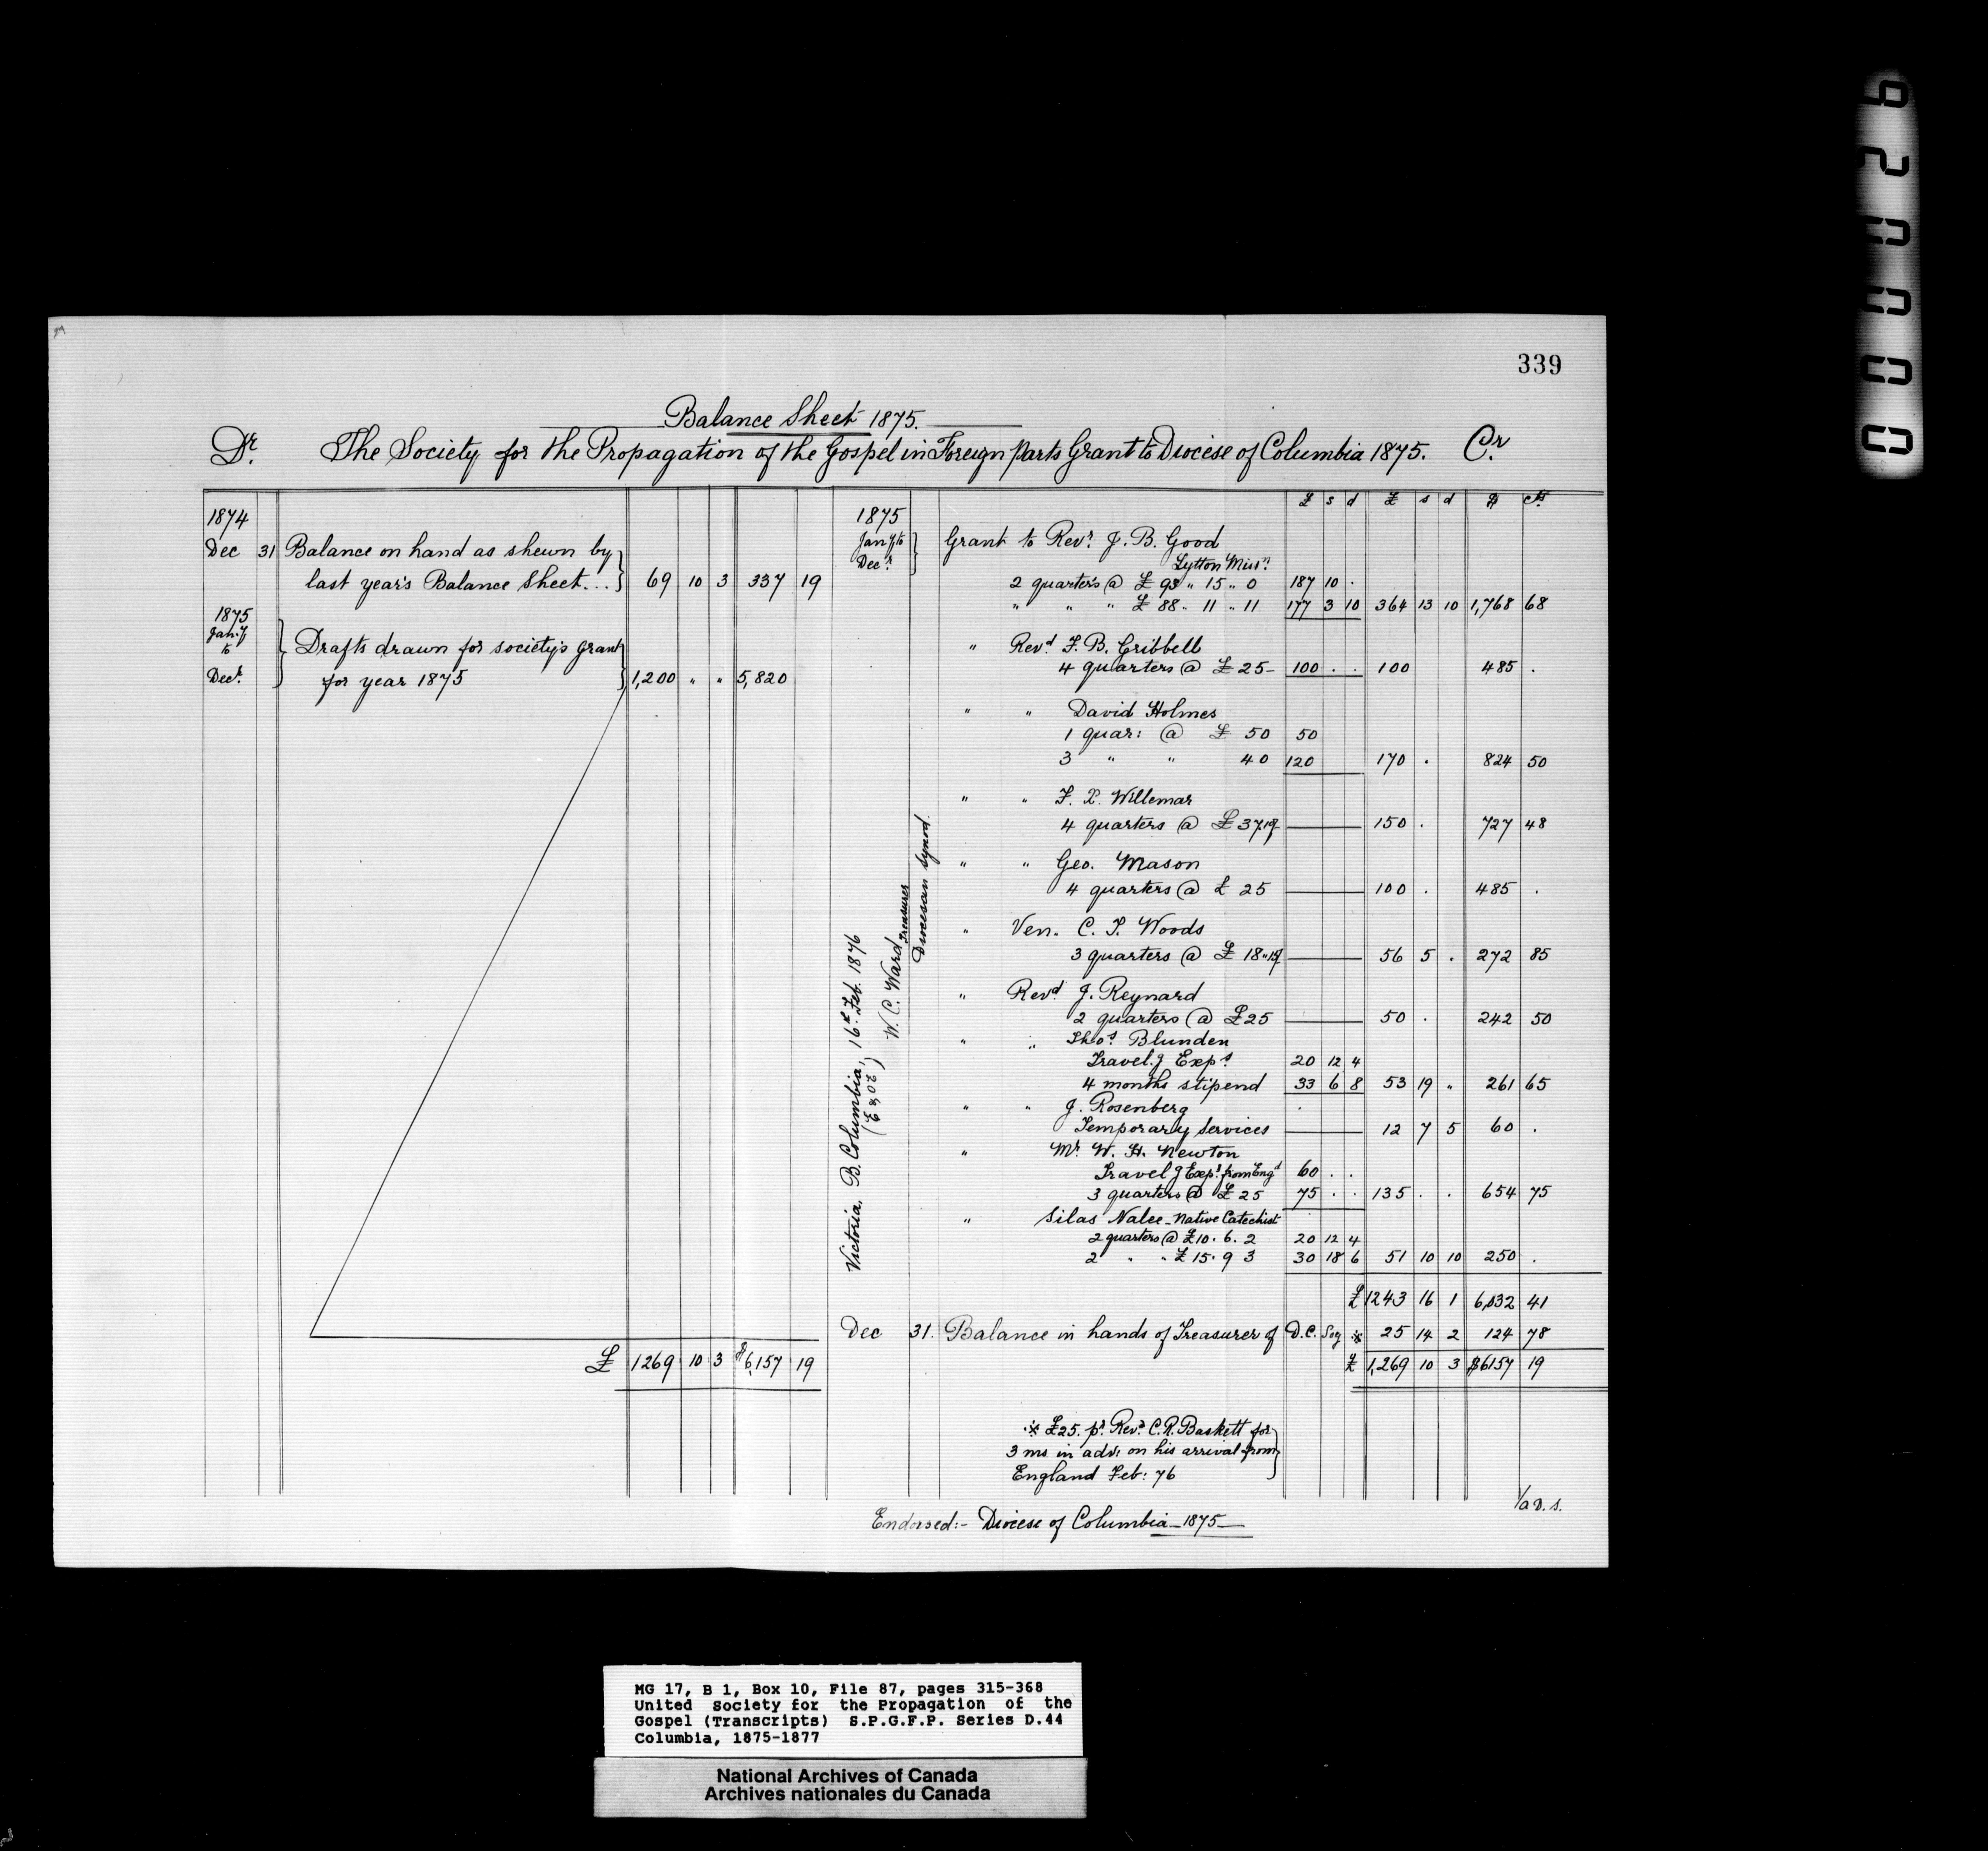 339
Balance Sheet 1875.
Dr. The Society for the Propagation of the Gospel in Foreign Parts Grant to Diocese of Columbia 1875. Cr.
1874
Dec 31 Balance on hand as shewn by
last year's Balance Sheet... 69 10 3 337 19
1875
Jany to Decr. Drafts drawn for society's grant
for year 1875 1,200 " " 5,820
£ 1269 10 3 $6,157 19
Victoria, B. Columbia, 16th Feb. 1876
(E & OE)
W. C. Ward Treasurer
Diocesan Synod.
£ s d £ s d $ cts
1875
Jany to Decr. Grant to Revd. J. B. Good
Lytton Missn.
2 quarters @ £ 93 " 15 " 0 187 10 .
" " " £ 88 " 11 " 11 177 3 10 364 13 10 1,768 68
" Revd. F. B. Gribbell
4 quarters @ £ 25- 100 . . 100 485 .
" " David Holmes
1 quar: @ £ 50 50
3 " " 40 120 170 . 824 50
" " F. X. Willemar
4 quarters @ £ 37.10/ 150 . 727 48
" " Geo. Mason
4 quarters @ £ 25 100 . 485 .
" Ven. C. T. Woods
3 quarters @ £ 18"15/ 56 5 . 272 85
" Revd J. Reynard
2 quarters @ £25 50 . 242 50
" " Thos. Blunden
Travel.g Exps 20 12 4
4 months stipend 33 6 8 53 19 " 261 65
" " J. Rosenberg
Temporary services 12 7 5 60 .
" Mr W. H. Newton
Travelg Exps. from Engd 60 . .
3 quarters @ £ 25 75 . . 135 . . 654 75
" Silas Nalee - Native Catechist
2 quarters @ £10. 6. 2 20 12 4
2 " " £ 15. 9 3 30 18 6 51 10 10 250 .
£1243 16 1 6,032 41
Dec 31. Balance in hands of Treasurer of D.C. Soy ※ 25 14 2 124 78
£ 1,269 10 3 $6157 19
※ £25. pd. Revd. C. R. Baskett for
3 ms in adv: on his arrival from
England Feb: 76
1/a D. S.
Endorsed:- Diocese of Columbia - 1875 -
MG 17, B 1, Box 10, File 87, pages 315-368
United Society for the Propagation of the
Gospel (Transcripts) S.P.G.F.P. Series D.44
Columbia, 1875-1877
National Archives of Canada
Archives nationales du Canada